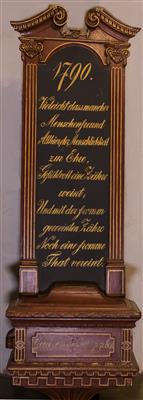 1790.
Vieleicht dass mancher
Menschenfreund
Allhier, der Menschlichkeit
zur Ehre,
Gefühlvoll eine Zähre
weint,
Und mit der fromm
geweinten Zähre
Noch eine fromme
That vereint.